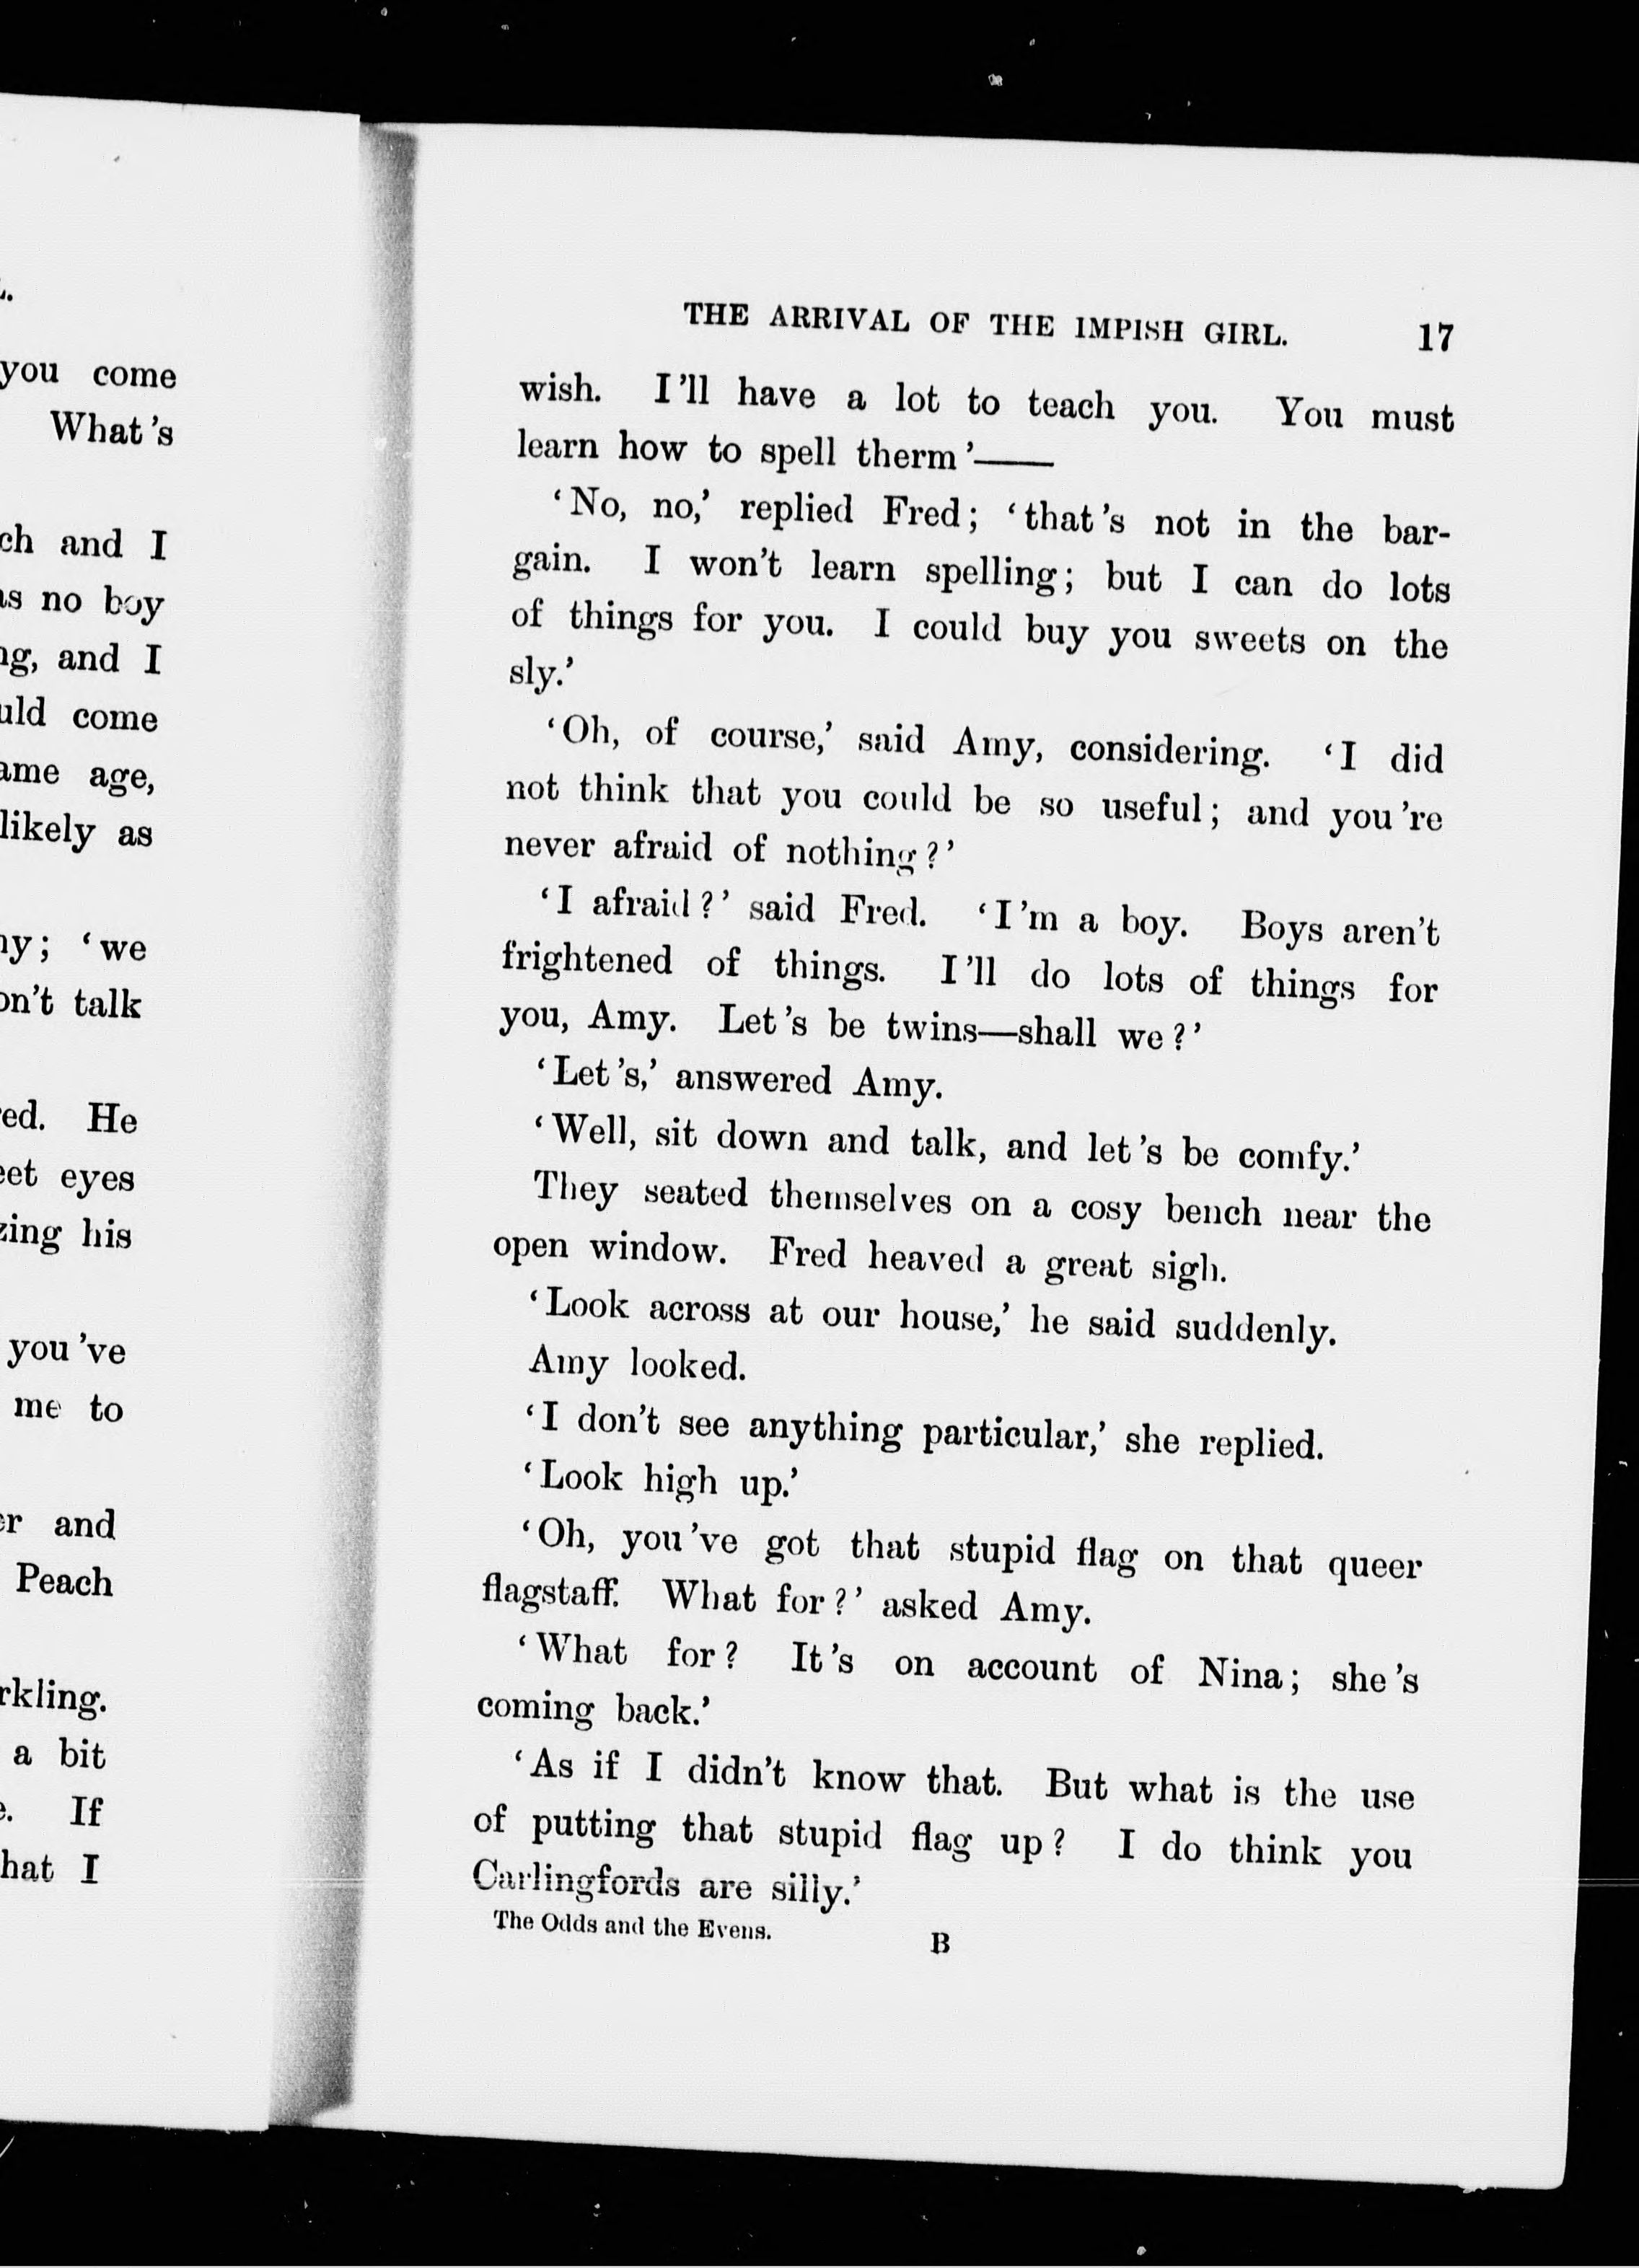 L.
you come
What's
ch and I
as no boy
ng, and I
uld come
ame age,
likely as
ny; ‘we
on't talk
ed. He
eet eyes
zing his
you've
me to
er and
Peach
rkling.
a bit
e. If
hat I
THE ARRIVAL OF THE IMPISH GIRL. 17
wish. I'll have a lot to teach you. You must
learn how to spell therm’——
‘No, no,’ replied Fred; ‘that's not in the bar-
gain. I won't learn spelling; but I can do lots
of things for you. I could buy you sweets on the
sly.’
‘Oh, of course,’ said Amy, considering. ‘I did
not think that you could be so useful; and you're
never afraid of nothing?’
‘I afraid?’ said Fred. ‘I'm a boy. Boys aren't
frightened of things. I'll do lots of things for
you, Amy. Let's be twins—shall we?’
‘Let's,’ answered Amy.
‘Well, sit down and talk, and let's be comfy.’
They seated themselves on a cosy bench near the
open window. Fred heaved a great sigh.
‘Look across at our house,’ he said suddenly.
Amy looked.
‘I don't see anything particular,’ she replied.
‘Look high up.’
‘Oh, you've got that stupid flag on that queer
flagstaff. What for?’ asked Amy.
‘What for? It's on account of Nina; she's
coming back.’
‘As if I didn't know that. But what is the use
of putting that stupid flag up? I do think you
Carlingfords are silly.’
The Odds and the Evens. B